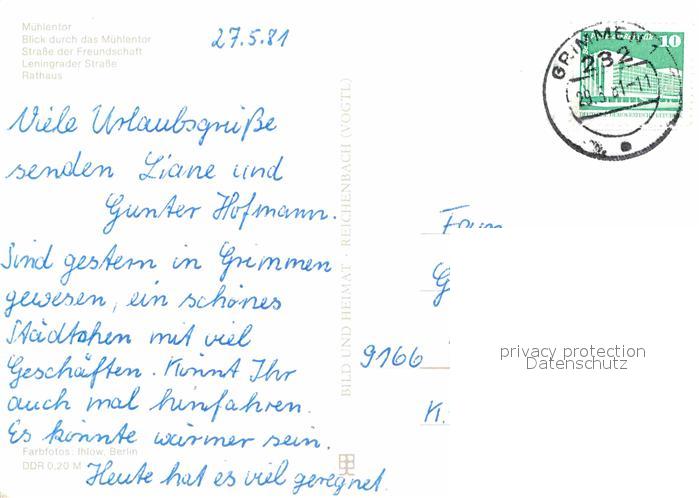 Mühlentor
Blick durch das Mühlentor
Straße der Freundschaft
Leningrader Straße
Rathaus
27.5.81
GRIMMEN 1
232
29.5.81-11
10
Viele Urlaubsgrüße
senden Liane und
Gunter Hofmann.
Sind gestern in Grimmen
gewesen, ein schönes
Städtchen mit viel
Geschäften. Könnt Ihr
auch mal hinfahren.
Es könnte wärmer sein.
Heute hat es viel geregnet.
Farbfotos: Ihlow, Berlin
DDR 0,20 M
BILD UND HEIMAT · REICHENBACH (VOGTL)
G
9166
K.
privacy protection
Datenschutz